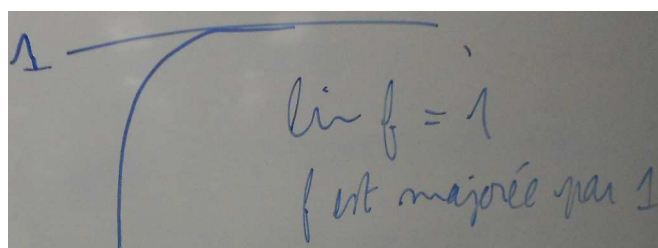 1
lim f = 1
f est majorée par 1